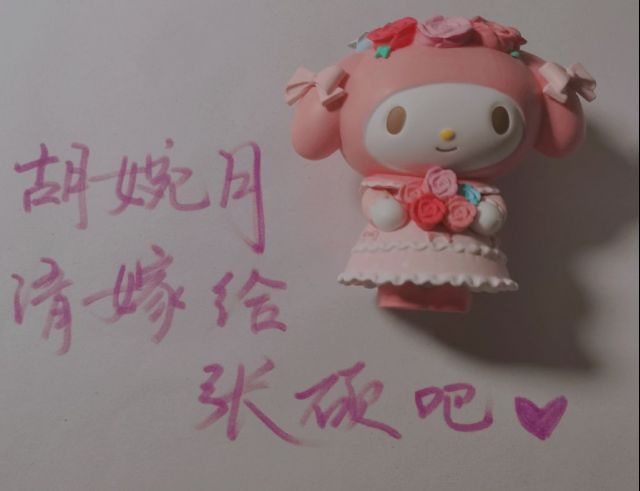 胡婉月
请嫁给
张硕吧